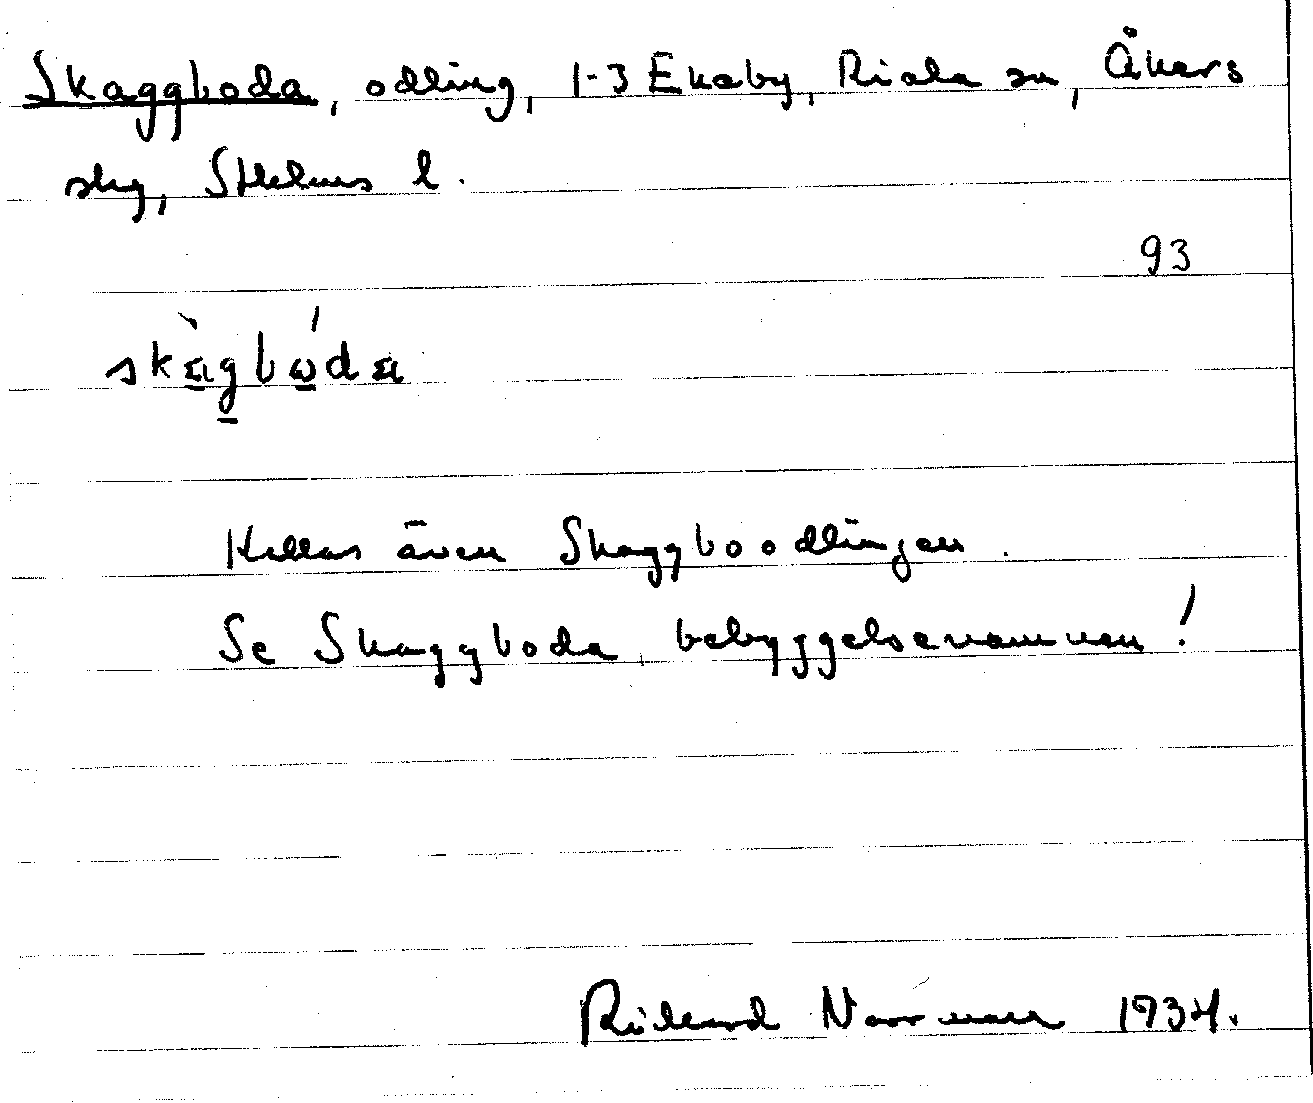 Skaggboda, odling, 1-3 Ekeby, Riala sn, Åkers
skg, Sthlms l.
93
skàgbo̱´da
Kallas även Skaggboodlingen.
Se Skaggboda, bebyggelsenamnen!
Rickard Norrman 1934.